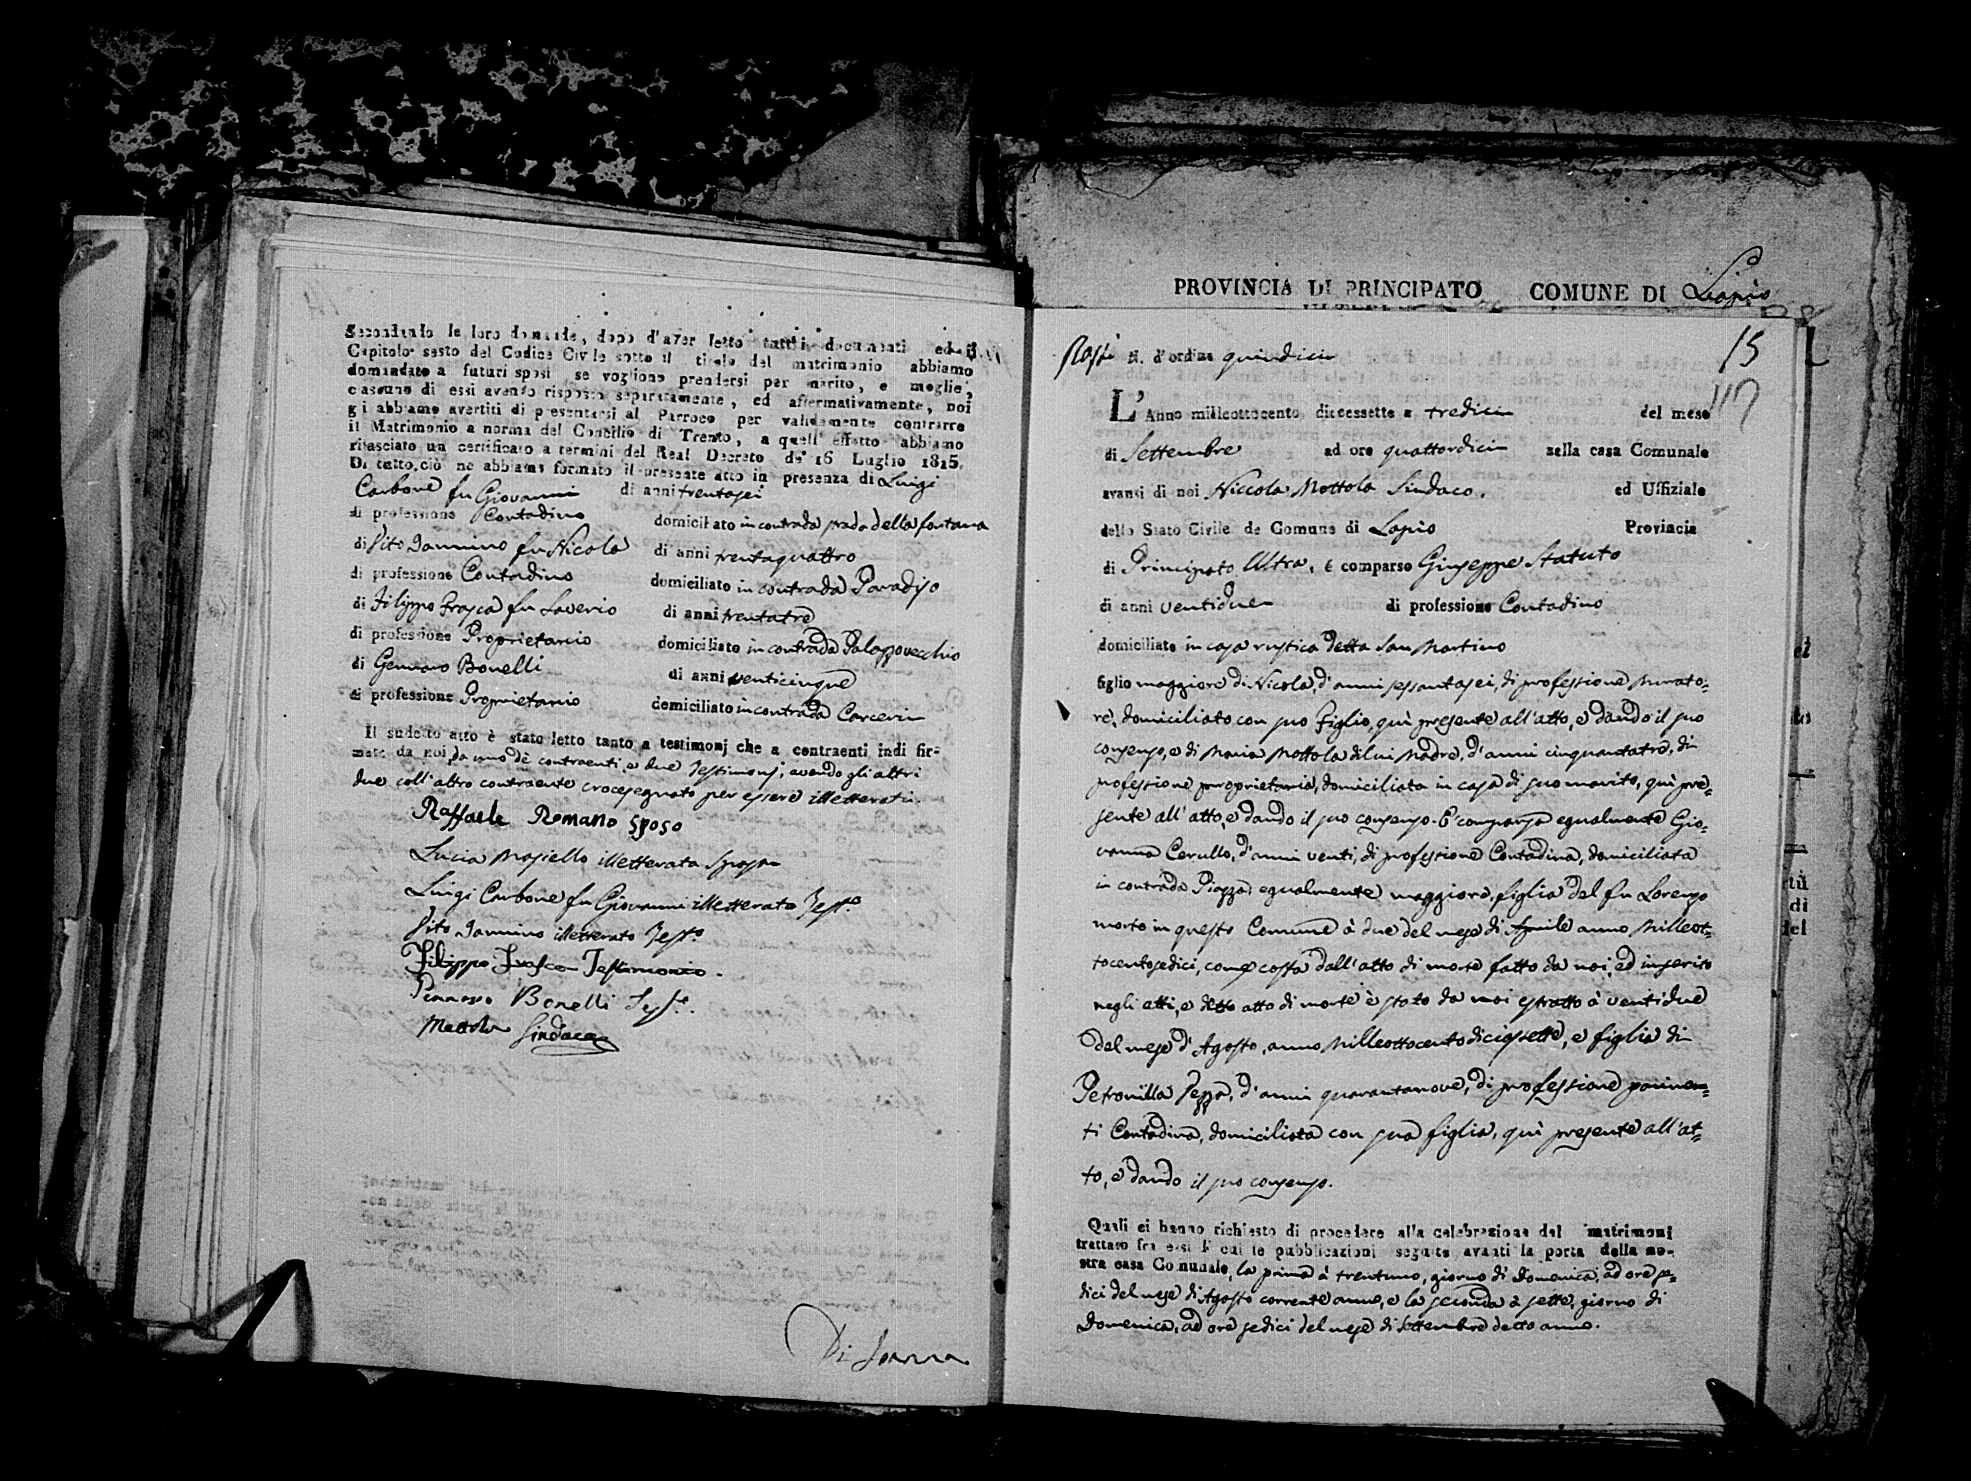 Secondando le loro domande, dopo d'aver letto tutti i documenti ed il
Capitolo sesto del Codice Civile sotto il titolo del matrimonio abbiamo
domandato a futuri sposi se vogliono prendersi per marito, e moglie,
ciascuno di essi avendo risposto separatamente, ed affermativamente, noi
gli abbiamo avertiti di presentarsi al Parroco per validamente contrarre
il Matrimonio a norma del Concilio di Trento, a quell' effetto abbiamo
rilasciato un certificato a termini del Real Decreto de' 16 Luglio 1815.
Di tutto ciò ne abbiamo formato il presente atto in presenza di Luigi
Carbone fu Giovanni di anni trentasei
di professione Contadino domiciliato in contrada prado della fontana
di Vito Iannino fu Nicola di anni trentaquattro
di professione Contadino domiciliato in contrada Paradiso
di Filippo Frasca fu Saverio di anni trentatre
di professione Proprietario domiciliato in contrada Palazzovecchio
di Gennaro Bonelli di anni venticinque
di professione Proprietario domiciliato in contrada Carceri
Il sudetto atto è stato letto tanto a testimonj che a contraenti indi fir-
mato da noi, da uno dè contraenti, e due Testimonj, avendo gli altri
due coll'altro contraente crocesegnato per essere illetterati.
Raffaele Romano sposo
Lucia Masiello illetterata sposa
Luigi Carbone fu Giovanni illetterato Test.o
Vito Iannino illetterato Test.o
Filippo Frasca Testimonio.
Gennaro Bonelli Test.o
Mottola Sindaco
Di Ioanna
PROVINCIA DI PRINCIPATO COMUNE DI Lapio
N. d'ordine quindici 15
L'Anno milleottocento diecessette a tredici del mese
di Settembre ad ore quattordici nella casa Comunale
avanti di noi Niccola Mottola Sindaco, ed Uffiziale
dello Stato Civile de Comune di Lapio Provincia
di Principato Ultra, è comparso Giuseppe Statuto
di anni ventidue di professione Contadino
domiciliato in casa rustica detta San Martino
figlio maggiore di Nicola, d'anni sessantasei, di professione Murato=
re, domiciliato con suo Figlio, quì presente all'atto, e dando il suo
consenso, e di Maria Mottola di lui Madre, d'anni cinquantatre, di
professione proprietaria, domiciliata in casa di suo marito, quì pre=
sente all'atto, e dando il suo consenso. E' comparsa egualmente Gio=
vanna Cerullo, d'anni venti, di professione Contadina, domiciliata
in contrada Piazza, egualmente maggiore, figlia del fu Lorenzo
morto in questo Comune à due del mese di Aprile anno Milleot=
tocentosedici, come costa dall'atto di morte fatto da noi, ed inserito
negli atti, e detto atto di morte è stato da noi estratto à ventidue
del mese d'Agosto, anno Milleottocentodiciessette, e figlia di
Petronilla Pezza, d'anni quarantanove, di professione parimen=
ti Contadina, domiciliata con sua figlia, quì presente all'at=
to, e dando il suo consenso.
Quali ci hanno richiesto di procedere alla celebrazione del matrimoni
trattato fra essi di cui le pubblicazioni seguite avanti la porta della no-
stra casa Comunale, la prima à trentuno, giorno di Domenica, ad ore se=
dici del mese di Agosto corrente anno, e la seconda à sette, giorno di
Domenica, ad ore sedici del mese di Settembre detto anno.